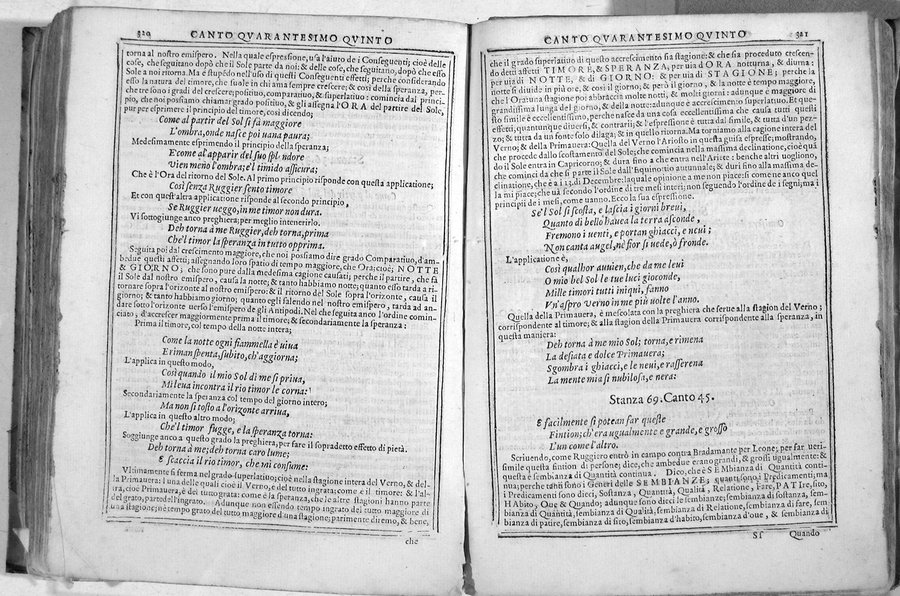 320 CANTO QVARANTESIMO QVINTO
torna al nostro emispero. Nella quale espressione, v'sa l'aiuto de i Conseguenti; cioè delle
cose, che seguitano dopò che il Sole parte da noi: & delle cose, che seguitano, dopò che esso
Sole a noi ritorna. Ma è stupēdo nell'uso di questi Conseguenti effetti; perche considerando
esso la natura del timore, che suole in chi ama sempre crescere; & così della speranza, per
che tre sono i gradi del crescere; positiuo, comparatiuo, & superlatiuo: comincia dal princi-
pio, che noi possiamo chiamar grado positiuo, & gli assegna l'ORA del partire del Sole,
pur per esprimere il principio del timore, così dicendo;
Come al partir del Sol si fa maggiore
L'ombra, onde nasce poi uana paura;
Medesimamente esprimendo il principio della speranza;
E come al apparir del suo splendore
Vien meno l'ombra; e'l timido assicura;
Che è l'Ora del ritorno del Sole. Al primo principio risponde con questa applicatione;
Così senza Ruggier sento timore
Et con quest'altra applicatione risponde al secondo principio,
Se Ruggier ueggo, in me timor non dura.
Vi sottogiunge anco preghiera; per meglio intenerirlo.
Deh torna à me Ruggier, deh torna, prima
Che'l timor la speranza in tutto opprima.
Seguita poi dal crescimento maggiore, che noi possiamo dire grado Comparatiuo, d'am-
bidue questi affetti; assegnando loro spatio di tempo maggiore, che Ora; cioè; NOTTE
& GIORNO; che sono pure dalla medesima cagione causati; perche il partire, che fà
il Sole dal nostro emispero, causa la notte; & tanto habbiamo notte; quanto esso tarda a ri-
tornare sopra l'orizonte al nostro emispero: & il ritorno del Sole sopra l'orizonte, causa il
giorno; & tanto habbiamo giorno; quanto egli salendo nel nostro emispero, tarda ad an-
dare sotto l'orizonte uerso l'emispero de gli Antipodi. Nel che seguita anco l'ordine comin-
ciato, d'accrescer maggiormente prima il timore; & secondariamente la speranza:
Prima il timore, col tempo della notte intera;
Come la notte ogni fiammella è uiua
E riman spenta, subito, ch'aggiorna;
L'applica in questo modo,
Così quando il mio Sol di me si priua,
Mi leua incontra il rio timor le corna:
Secondariamente la speranza col tempo del giorno intero;
Ma non si tosto a l'orizonte arriua,
L'applica in quest'altro modo;
Che'l timor fugge, e la speranza torna:
Soggiunge anco a questo grado la preghiera, per fare il sopradetto effetto di pietà.
Deh torna à me; deh torna caro lume;
E scaccia il rio timor, che mi consume:
Vltimamente si ferma nel grado superlatiuo; cioè nella stagione intera del Verno, & del-
la Primauera: l'una delle quali cioè il Verno, e del tutto ingrata; come è il timore: & l'al-
tra, cioè Primauera, è del tutto grata: come è la speranza, che le altre stagioni hanno parte
del grato, parte dell'ingrato. Adunque non essendo tempo ingrato del tutto maggior di
una stagione; nè tempo grato del tutto maggiore d'una stagione; parimente diremo, & bene,
che
CANTO QVARANTESIMO QVINTO 321
che il grado superlatiuo di questo accrescimento sia stagione: & che sia proceduto crescen-
do detti affetti TIMORE, & SPERANZA, per uia d'ORA notturna, & diurna:
per uia di NOTTE, & di GIORNO: & per uia di STAGIONE; perche la
notte si diuide in più ore, & così il giorno; & però il giorno, & la notte è tempo maggiore,
che l'Ora: una stagione poi abbraccia molte notti, & molti giorni: adunque è maggior di
grandissima lunga del giorno, & della notte: adunque è accrescimento superlatiuo. Et que-
sto simile è eccellentissimo, perche nasce da una cosa eccellentissima che causa tutti questi
effetti, quantunque diuersi, & contrarij; & l'espressione è tutta dal simile, & tutta d'un pez-
zo; & tutta da un fonte solo dilaga; & in quello ritorna. Ma torniamo alla cagione intera del
Verno; & della Primauera: Quella del Verno l'Ariosto in questa guisa espresse; mostrando,
che procede dallo scostamento del Sole; che comincia nella massima declinatione, cioè quā
do il Sole entra in Capricorno; & dura sino a che entra nell'Ariete: benche altri uogliono,
che cominci da che si parte il Sole dall'Equinottio autunnale; & duri sino alla massima de-
clinatione, che è a i 13. di Decembre: la quale opinione a me non piace: si come ne anco quel
la mi piace; che uà secondo l'ordine di tre mesi interi; non seguendo l'ordine de i segni; ma i
principij de i mesi, come uanno. Ecco la sua espressione.
Se'l Sol si scosta, e lascia i giorni breui,
Quanto di bello hauea la terra asconde,
Fremono i uenti, e portan ghiacci, e neui;
Non canta augel, nè fior si uede, ò fronde.
L'applicatione è,
Così qualhor auuien, che da me leui
O mio bel Sol le tue luci gioconde,
Mille timori tutti iniqui, fanno
Vn'aspro Verno in me più uolte l'anno.
Quella della Primauera, è mescolata con la preghiera che serue alla stagion del Verno;
corrispondente al timore; & alla stagion della Primauera corrispondente alla speranza, in
questa maniera:
Deh torna à me mio Sol; torna, e rimena
La desiata e dolce Primauera;
Sgombra i ghiacci, e le neui, e rasserena
La mente mia sì nubilosa, e nera:
Stanza 69. Canto 45.
E facilmente si potean far queste
Fintion; ch'era ugualmente e grande, e grosso
L'un come l'altro.
Scriuendo, come Ruggiero entrò in campo contra Bradamante per Leone; per far ueri-
simile questa fintion di persone; dice, che ambedue eran grandi, & grossi ugualmente: &
questa è sembianza di Quantità continua. Dico, che è SEmbianza di Quantità conti-
nua; perche tanti sono i Generi delle SEMBIANZE; quanti sono i Predicamenti; ma
i Predicamenti sono dieci, Sostanza, Quantità, Qualità, Relatione, Fare, PATIre, sito,
HAbito, Oue & Quando; adunque sono dieci le sembianze; sembianza di sostanza, sem-
bianza di Quantità, sembianza di Qualità, sembianza di Relatione, sembianza di fare, sem
bianza di patire, sembianza di sito, sembianza d'habito, sembianza d'oue, & sembianza di
Sſ Quando